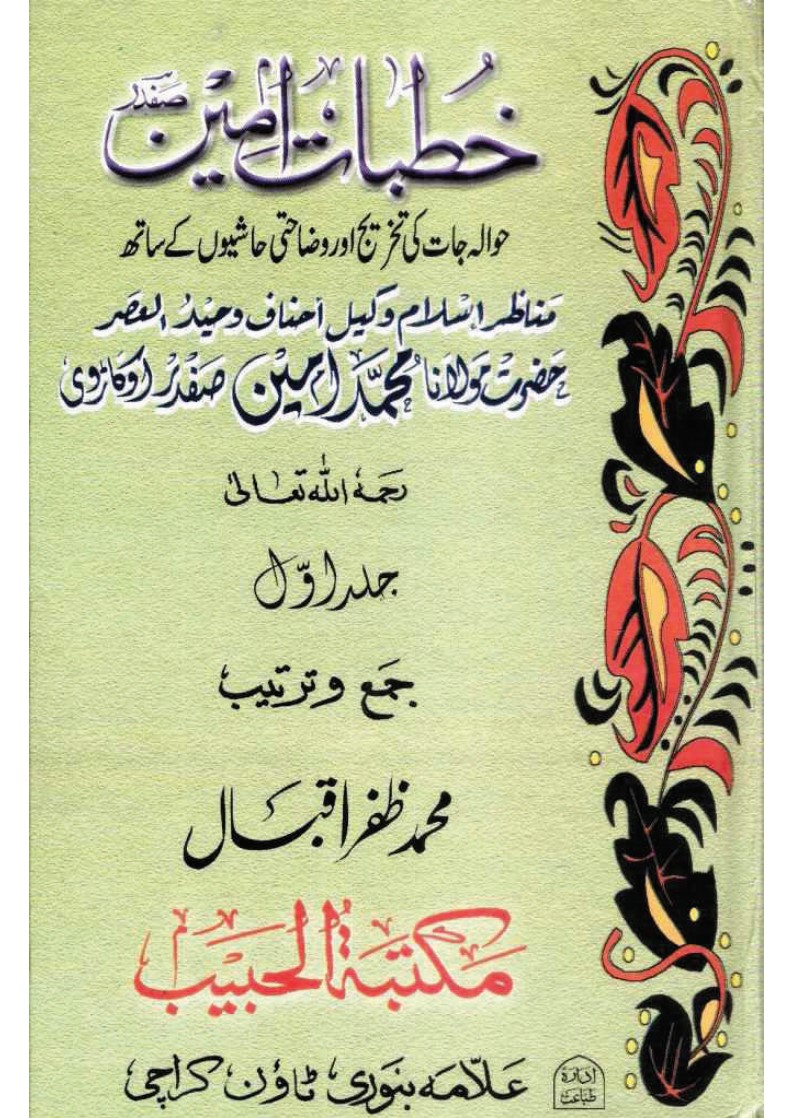 خُطباتِ امین صفدر
حوالہ جات کی تخریج اور وضاحتی حاشیوں کے ساتھ
مناظرِ اسلام وکیل احناف وحیدُ العصر
حضرت مولانا محمّد امین صفدر اوکاڑوی
رحمہ اللہ تعالیٰ
جلد اوّل
جمع و ترتیب
محمد ظفر اقبال
مکتبۃُ الحبیب
علّامہ بنوری ٹاؤن کراچی
ادارۃ
طباعت